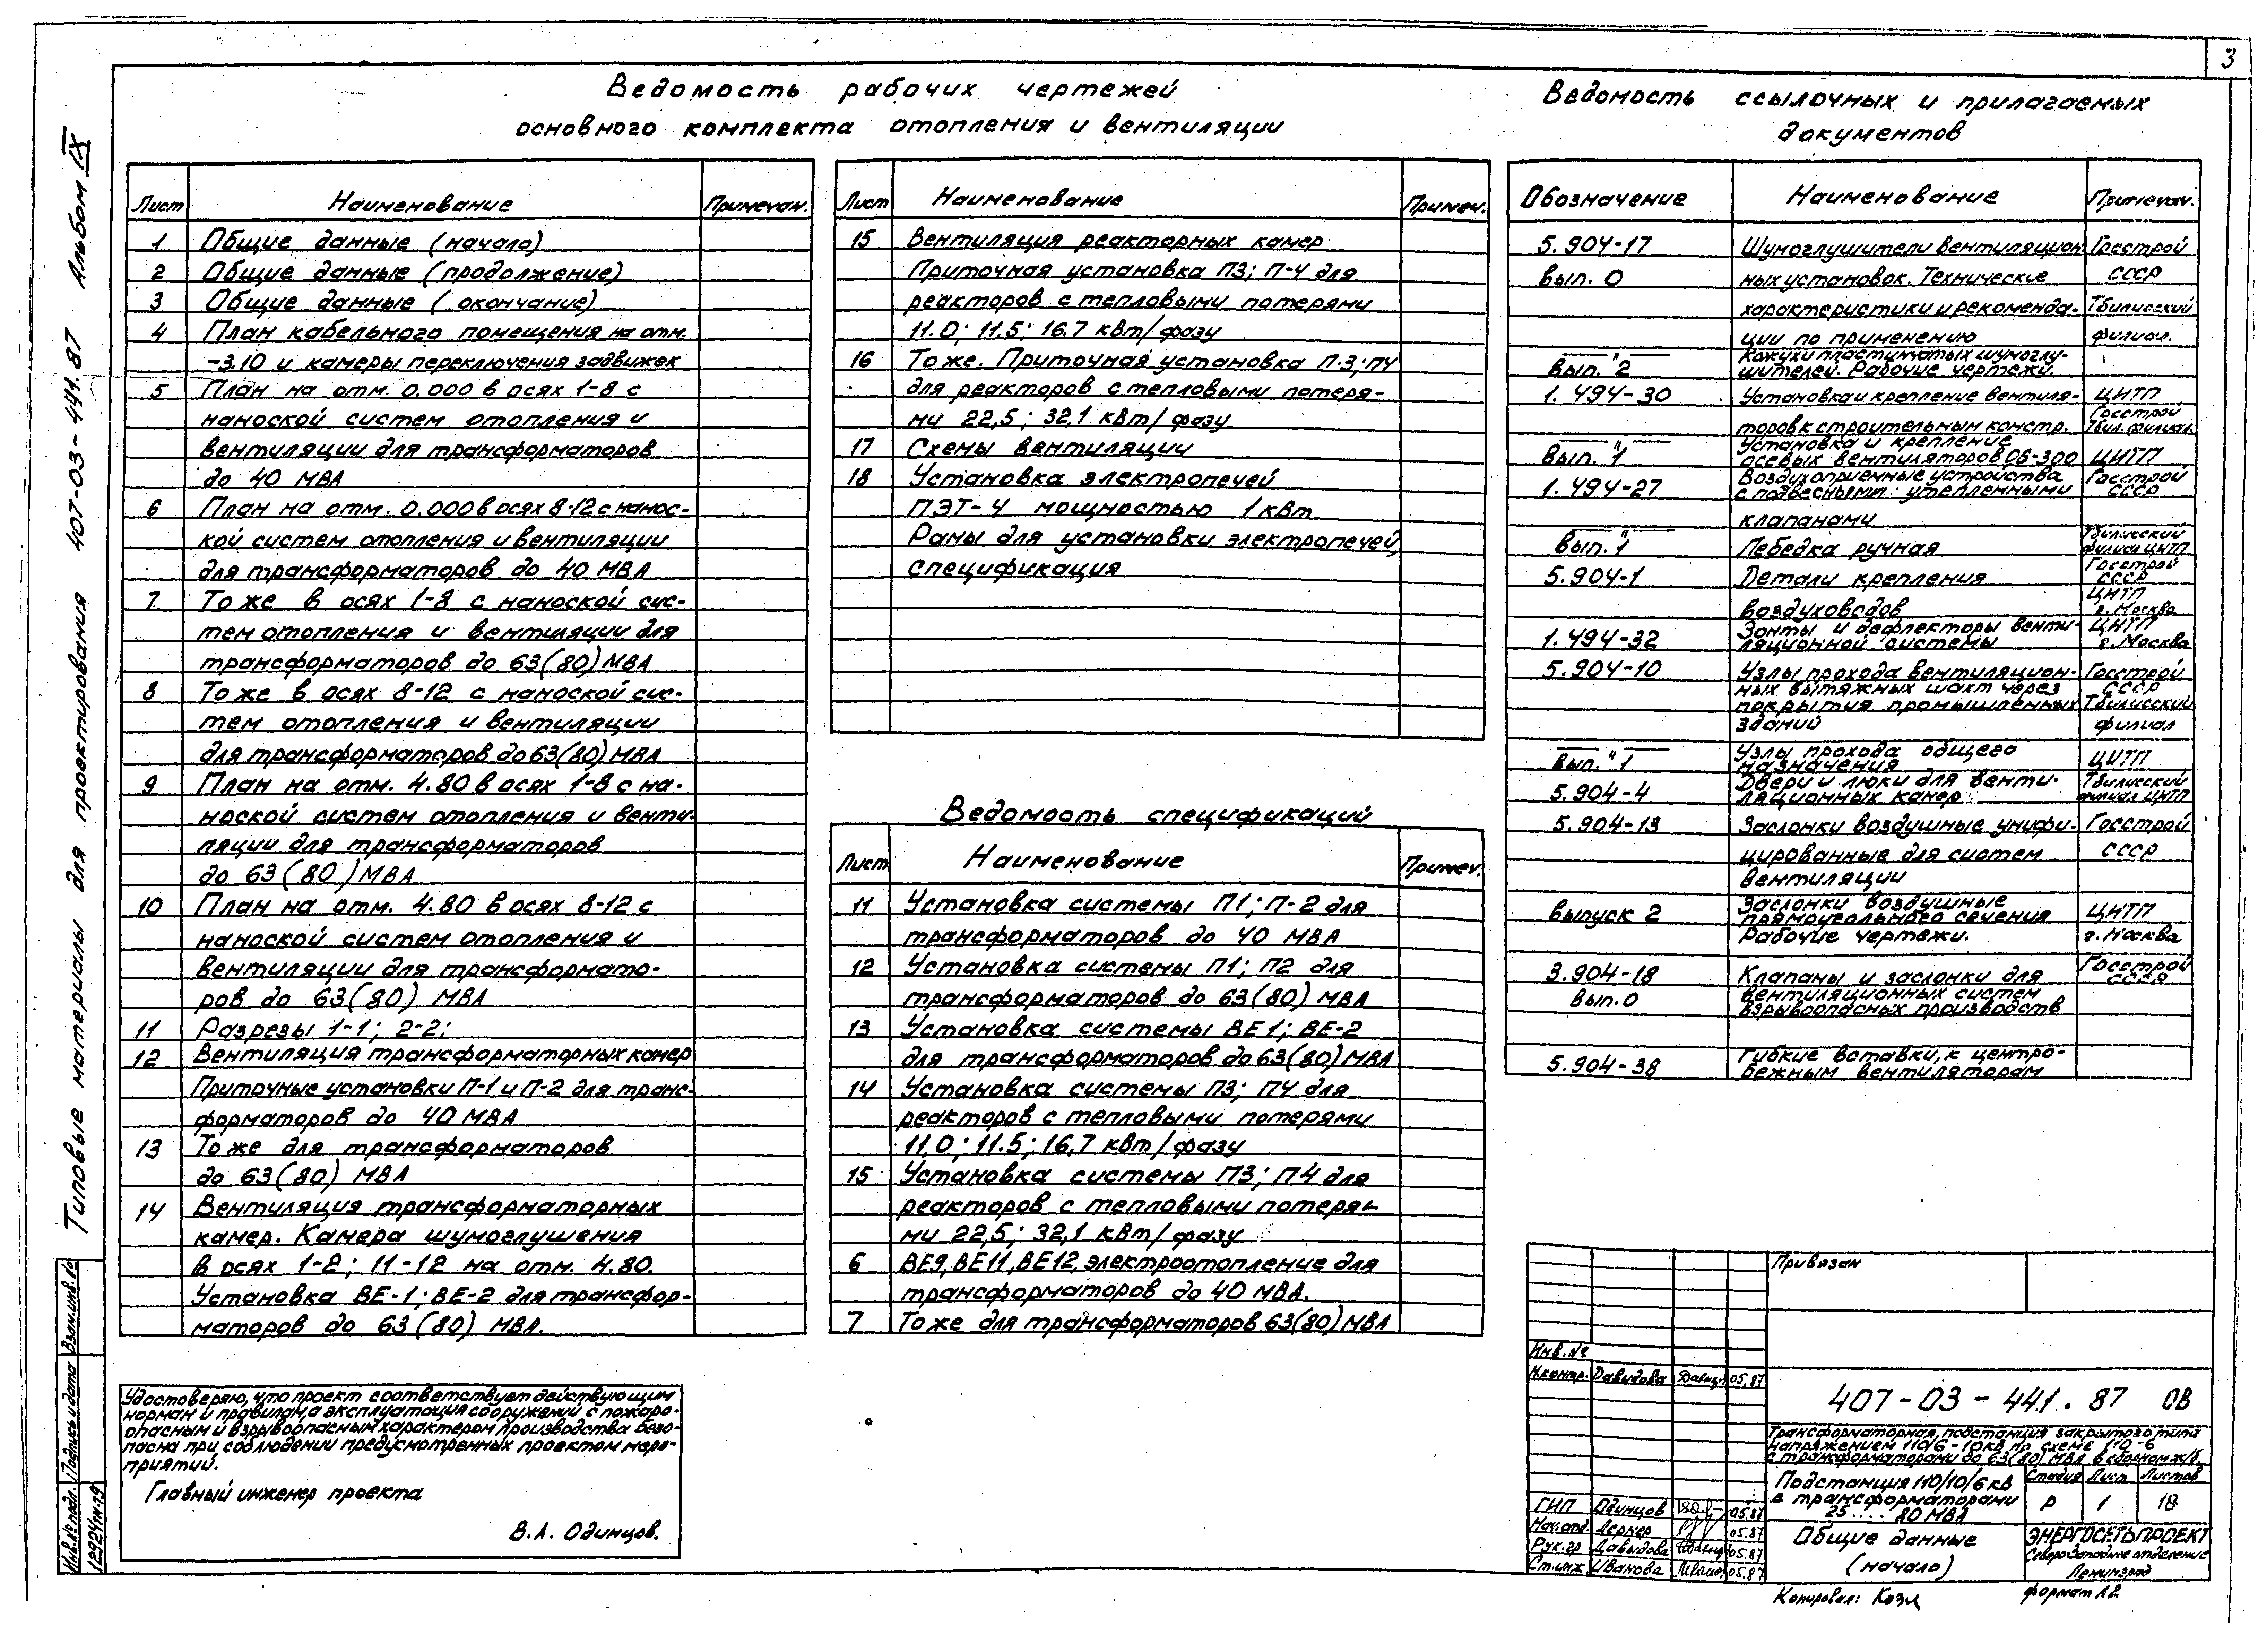 3
Типовые материалы для проектирования 407-03-441.87 Альбом IX
Ведомость рабочих чертежей
основного комплекта отопления и вентиляции
Лист Наименование Примечан.
1 Общие данные (начало)
2 Общие данные (продолжение)
3 Общие данные (окончание)
4 План кабельного помещения на отм.
-3.10 и камеры переключения задвижек
5 План на отм. 0.000 в осях 1-8 с
наноской систем отопления и
вентиляции для трансформаторов
до 40 МВА
6 План на отм. 0.000 в осях 8-12 с нанос-
кой систем отопления и вентиляции
для трансформаторов до 40 МВА
7 То же в осях 1-8 с наноской сис-
тем отопления и вентиляции для
трансформаторов до 63(80) МВА
8 То же в осях 8-12 с наноской сис-
тем отопления и вентиляции
для трансформаторов до 63(80) МВА
9 План на отм. 4.80 в осях 1-8 с на-
ноской систем отопления и венти-
ляции для трансформаторов
до 63(80) МВА
10 План на отм. 4.80 в осях 8-12 с
наноской систем отопления и
вентиляции для трансформато-
ров до 63(80) МВА
11 Разрезы 1-1; 2-2;
12 Вентиляция трансформаторных камер
Приточные установки П-1 и П-2 для транс-
форматоров до 40 МВА
13 То же для трансформаторов
до 63(80) МВА
14 Вентиляция трансформаторных
камер. Камера шумоглушения
в осях 1-2; 11-12 на отм. 4.80.
Установка ВЕ-1; ВЕ-2 для трансфор-
маторов до 63(80) МВА.
Лист Наименование Примеч.
15 Вентиляция реакторных камер
Приточная установка П3; П-4 для
реакторов с тепловыми потерями
11.0; 11.5; 16,7 кВт/фазу
16 То же. Приточная установка П-3; П4
для реакторов с тепловыми потеря-
ми 22,5; 32,1 кВт/фазу
17 Схемы вентиляции
18 Установка электропечей
ПЭТ-4 мощностью 1 кВт
Рамы для установки электропечей,
спецификация
Ведомость спецификаций
Лист Наименование Примеч.
11 Установка системы П1; П-2 для
трансформаторов до 40 МВА
12 Установка системы П1; П2 для
трансформаторов до 63(80) МВА
13 Установка системы ВЕ1; ВЕ-2
для трансформаторов до 63(80) МВА
14 Установка системы П3; П4 для
реакторов с тепловыми потерями
11,0; 11.5; 16,7 кВт/фазу
15 Установка системы П3; П4 для
реакторов с тепловыми потеря-
ми 22,5; 32,1 кВт/фазу
6 ВЕ9, ВЕ11, ВЕ12, электроотопление для
трансформаторов до 40 МВА.
7 То же для трансформаторов 63(80) МВА
Ведомость ссылочных и прилагаемых
документов
Обозначение Наименование Примечан.
5.904-17 Шумоглушители вентиляцион- Госстрой
вып. 0 ных установок. Технические СССР
характеристики и рекоменда- Тбилисский
ции по применению филиал.
—"— Кожухи пластинчатых шумоглу-
вып. 2 шителей. Рабочие чертежи.
1.494-30 Установка и крепление вентиля- ЦИТП
Госстрой
торов к строительным констр. Тбил. филиал.
—"— Установка и крепление
вып. 1 осевых вентиляторов 06-300 ЦИТП
1.494-27 Воздухоприемные устройства Госстрой
с подвесными утепленными СССР
клапанами
—"— Тбилисский
вып. 1 Лебедка ручная филиал ЦИТП
5.904-1 Детали крепления Госстрой
СССР
ЦИТП
воздуховодов г. Москва
1.494-32 Зонты и дефлекторы венти- ЦИТП
ляционной системы г. Москва
5.904-10 Узлы прохода вентиляцион- Госстрой
ных вытяжных шахт через СССР
покрытия промышленных Тбилисский
зданий филиал
—"— Узлы прохода общего
вып. 1 назначения ЦИТП
5.904-4 Двери и люки для венти- Тбилисский
ляционных камер филиал ЦИТП
5.904-13 Заслонки воздушные унифи- Госстрой
цированные для систем СССР
вентиляции
Выпуск 2 Заслонки воздушные
прямоугольного сечения ЦИТП
Рабочие чертежи. г. Москва
3.904-18 Клапаны и заслонки для Госстрой
СССР
вып. 0 вентиляционных систем
взрывоопасных производств
5.904-38 Гибкие вставки, к центро-
бежным вентиляторам
Удостоверяю, что проект соответствует действующим
нормам и правилам, а эксплуатация сооружений с пожаро-
опасным и взрывоопасным характером производства безо-
пасна при соблюдении предусмотренных проектом меро-
приятий.
Главный инженер проекта
В.А. Одинцов.
Инв. № подл. Подпись и дата Взам. инв. №
12924тм-т9
Привязан
Инв. №
Н.контр. Давыдова 05.87
407-03-441.87 ОВ
Трансформаторная подстанция закрытого типа
напряжением 110/6-10кВ по схеме 110-6
с трансформаторами до 63(80) МВА в сборном ж/б.
Подстанция 110/10/6 кВ
с трансформаторами
25....80 МВА
Стадия Лист Листов
Р 1 18
ГИП Одинцов 05.87
Нач.отд. Лернер 05.87
Рук.гр Давыдова 05.87
Ст.инж. Иванова 05.87
Общие данные
(начало)
ЭНЕРГОСЕТЬПРОЕКТ
Северо-Западное отделение
Ленинград
Копировал: Козц
формат А2